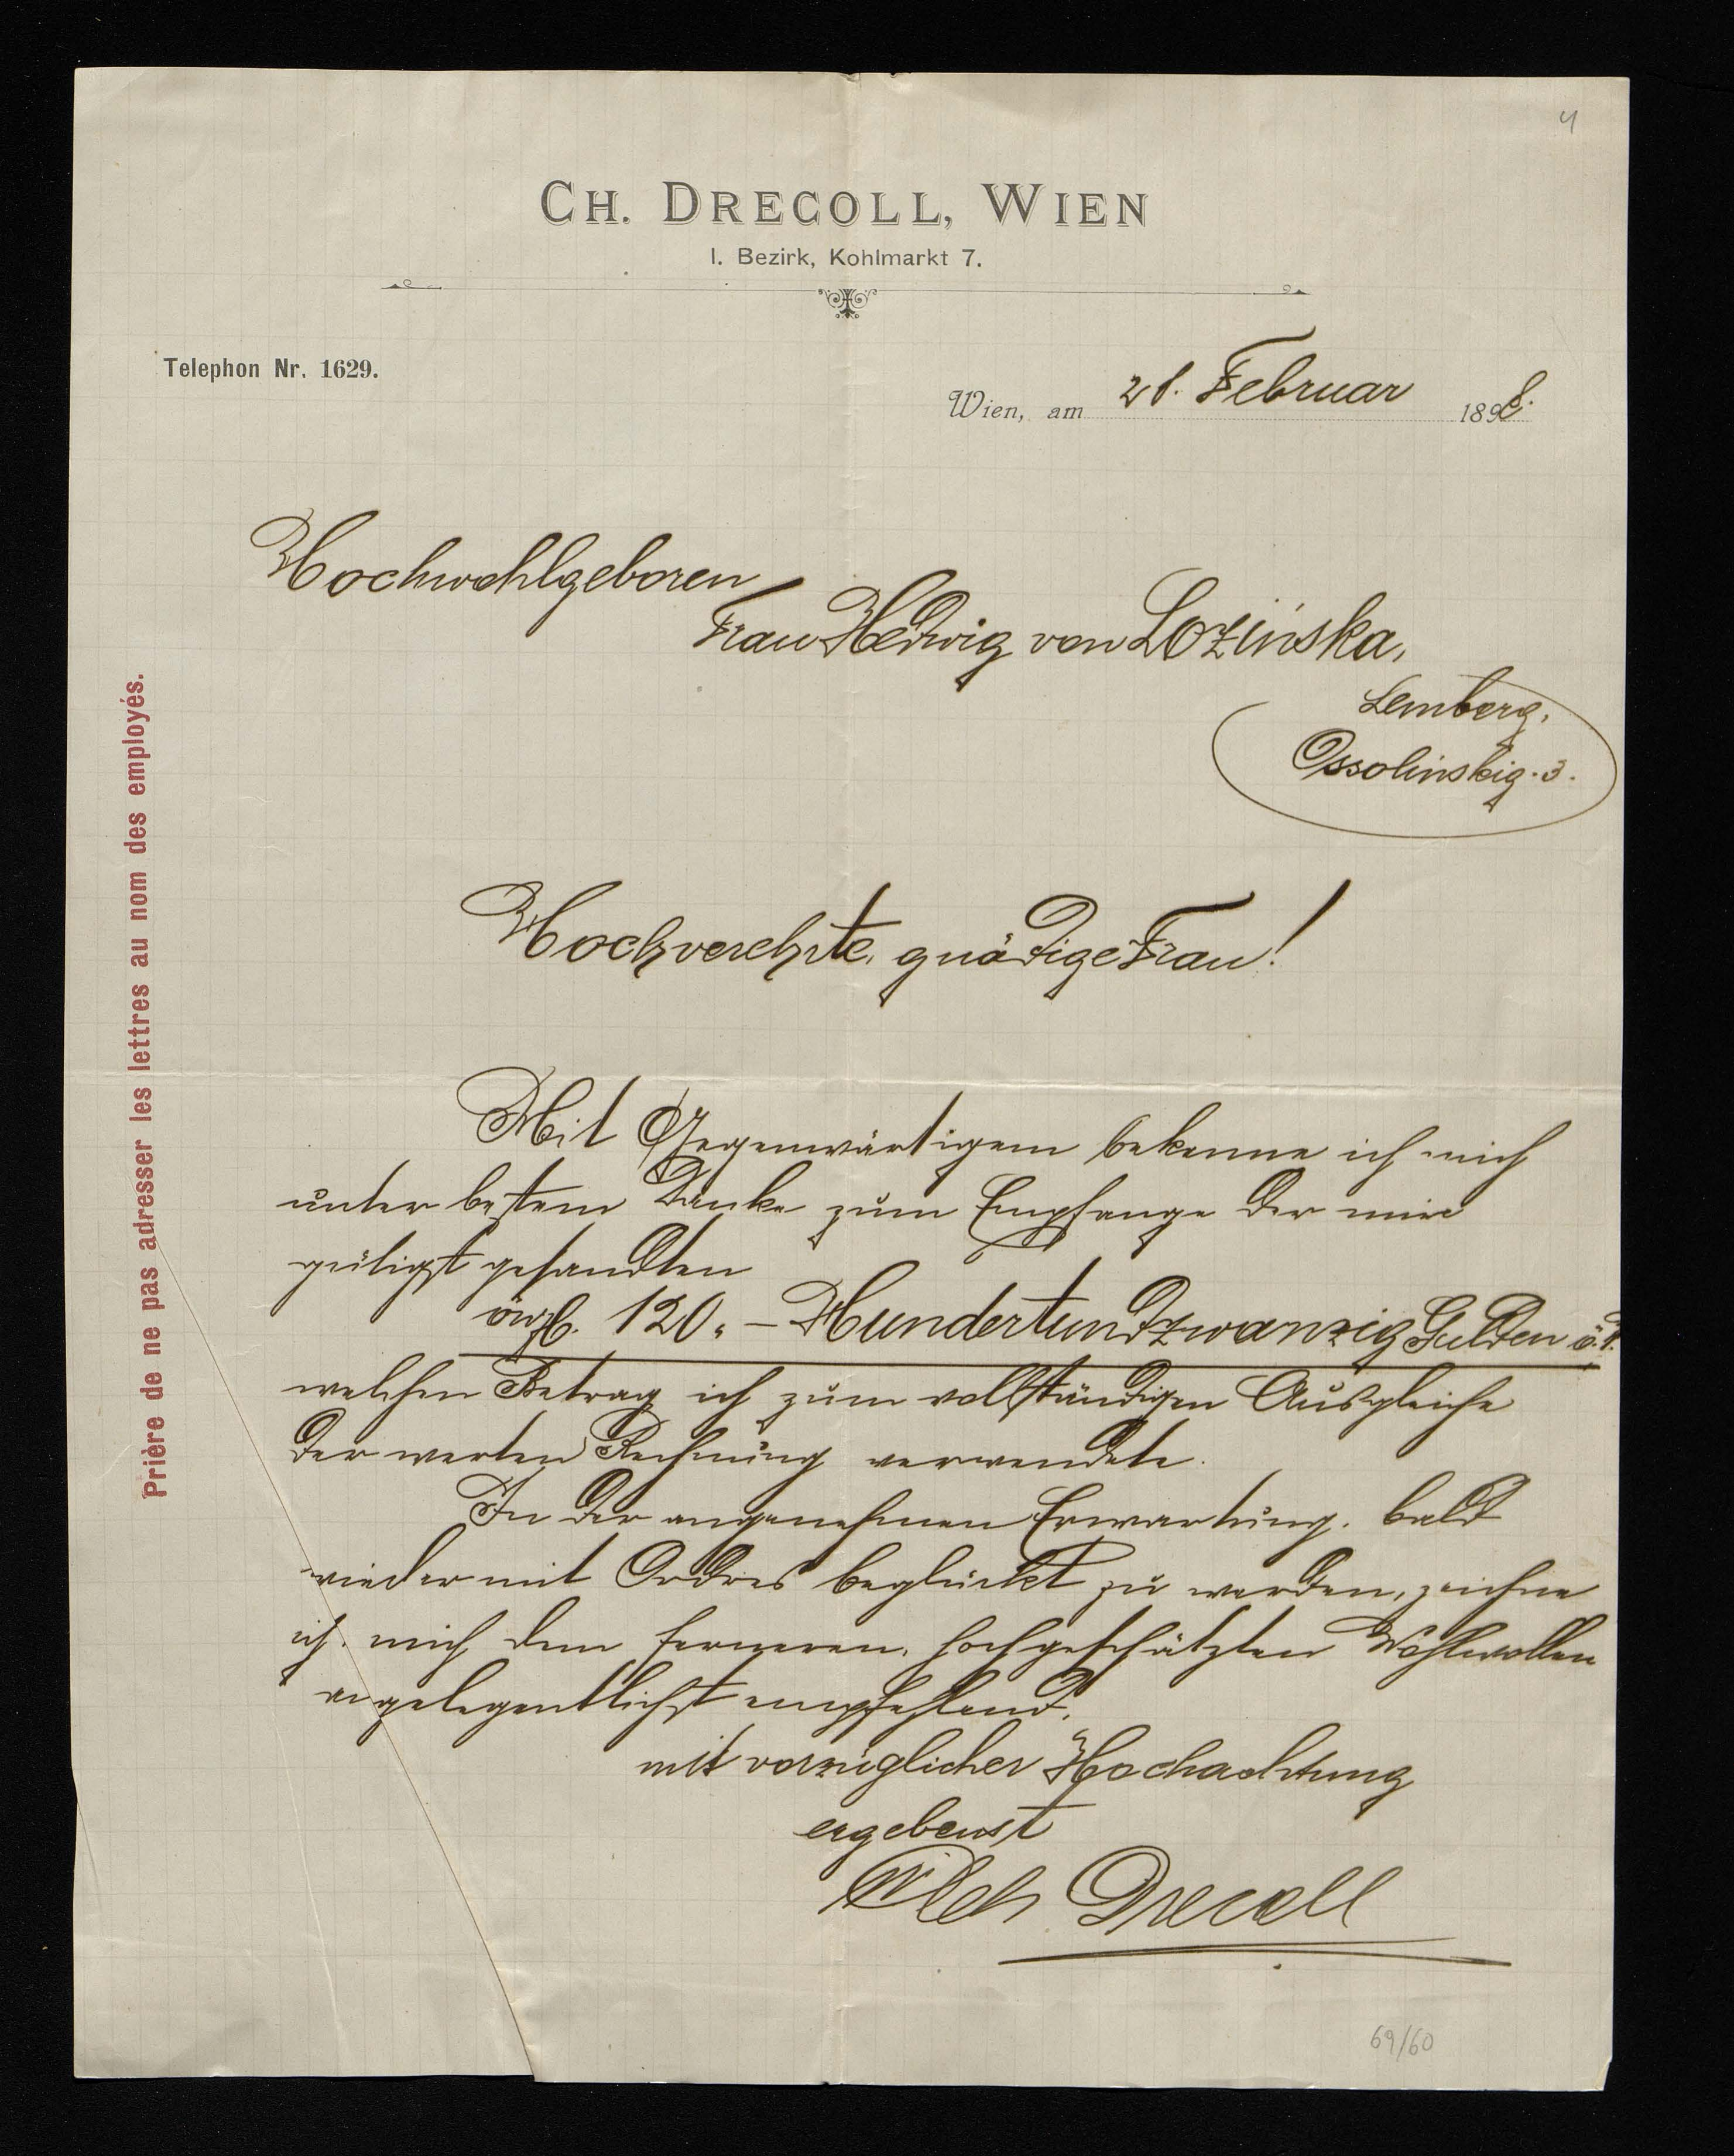 4
CH. DRECOLL, WIEN
I. Bezirk, Kohlmarkt 7.
Telephon Nr. 1629.
Wien, am 21. Februar 1898.
Hochwohlgeboren
Frau Hedwig von Lozińska,
Lemberg,
Ossolinskig. 3.
Hochverehrte, gnädige Frau!
Mit Gegenwärtigem bekenne ich mich
unter bestem Danke zum Empfange der mir
gütigst gesandten
öwfl. 120.- Hundertundzwanzig Gulden
welchen Betrag ich zum vollständigen Ausgleiche
der werten Rechnung verwendete.
In der angenehmen Erwartung, bald
wieder mit Ordres beglückt zu werden, zeichne
ich, mich dem ferneren, hochgeschätzten Wohlwollen
angelegentlichst empfehlend,
mit vorzüglicher Hochachtung
ergebenst
Drecoll
69/60
Prière de ne pas adresser les lettres au nom des employés.